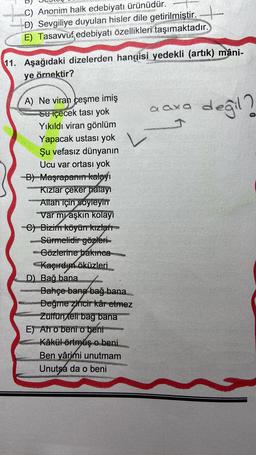 C) Anonim halk edebiyatı ürünüdür.
D) Sevgiliye duyulan hisler dile getirilmiştir.
E) Tasavvuf edebiyatı özellikleri taşımaktadır.
11. Aşağıdaki dizelerden hangisi yedekli (artık) mâni-
ye örnektir?
A) Ne viran çeşme imiş
Su içecek tası yok
Yıkıldı viran gönlüm
Yapacak ustası yok
Şu vefasız dünyanın
Ucu var ortası yok
aaxa değil?
B) Maşrapanın kalayı
Kızlar çeker halayı
Allah için söyleyin
Var mı aşkın kolayı
C) Bizim köyün kızları
Sürmelidir gözleri
Gözlerine bakınca
Kaçırdım öküzleri
D) Bağ bana
Bahçe bana bağ bana
Değme zincir kâr etmez
Zülfün teli bağ bana
E) Ah o beni o beni
Kâkül örtmüş o beni
Ben yârimi unutmam
Unutsa da o beni